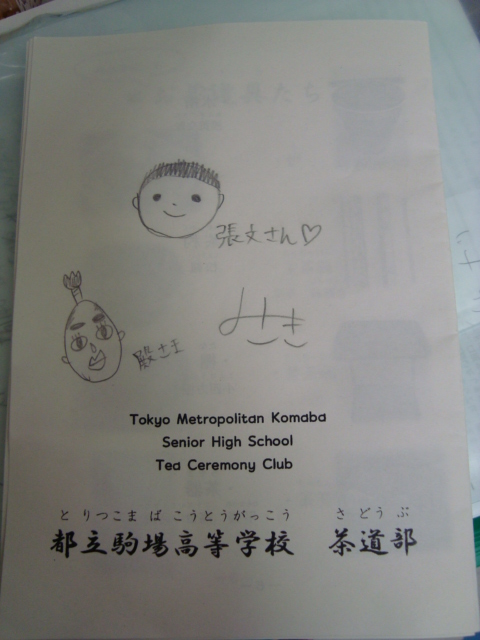 張文さん♡
みさき
殿さま
Tokyo Metropolitan Komaba
Senior High School
Tea Ceremony Club
とりつこまばこうとうがっこう さどうぶ
都立駒場高等学校 茶道部